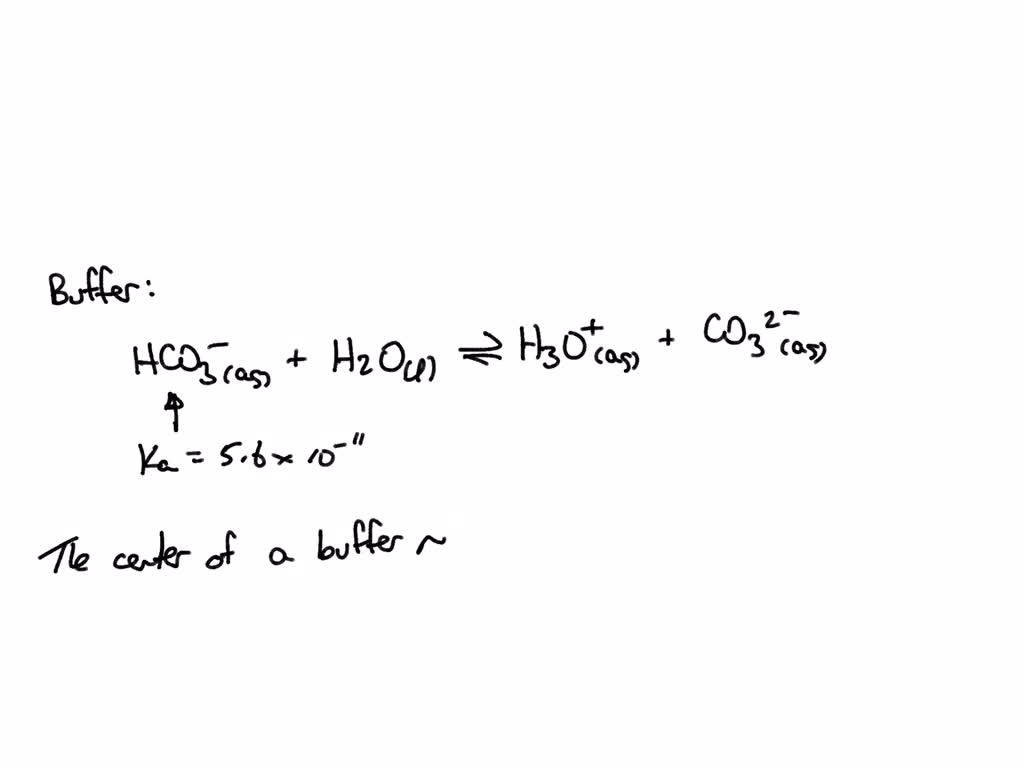 Buffer:
HCO₃⁻(aq) + H₂O(l) ⇌ H₃O⁺(aq) + CO₃²⁻(aq)
↑
Ka = 5.6 × 10⁻¹¹
The center of a buffer ~